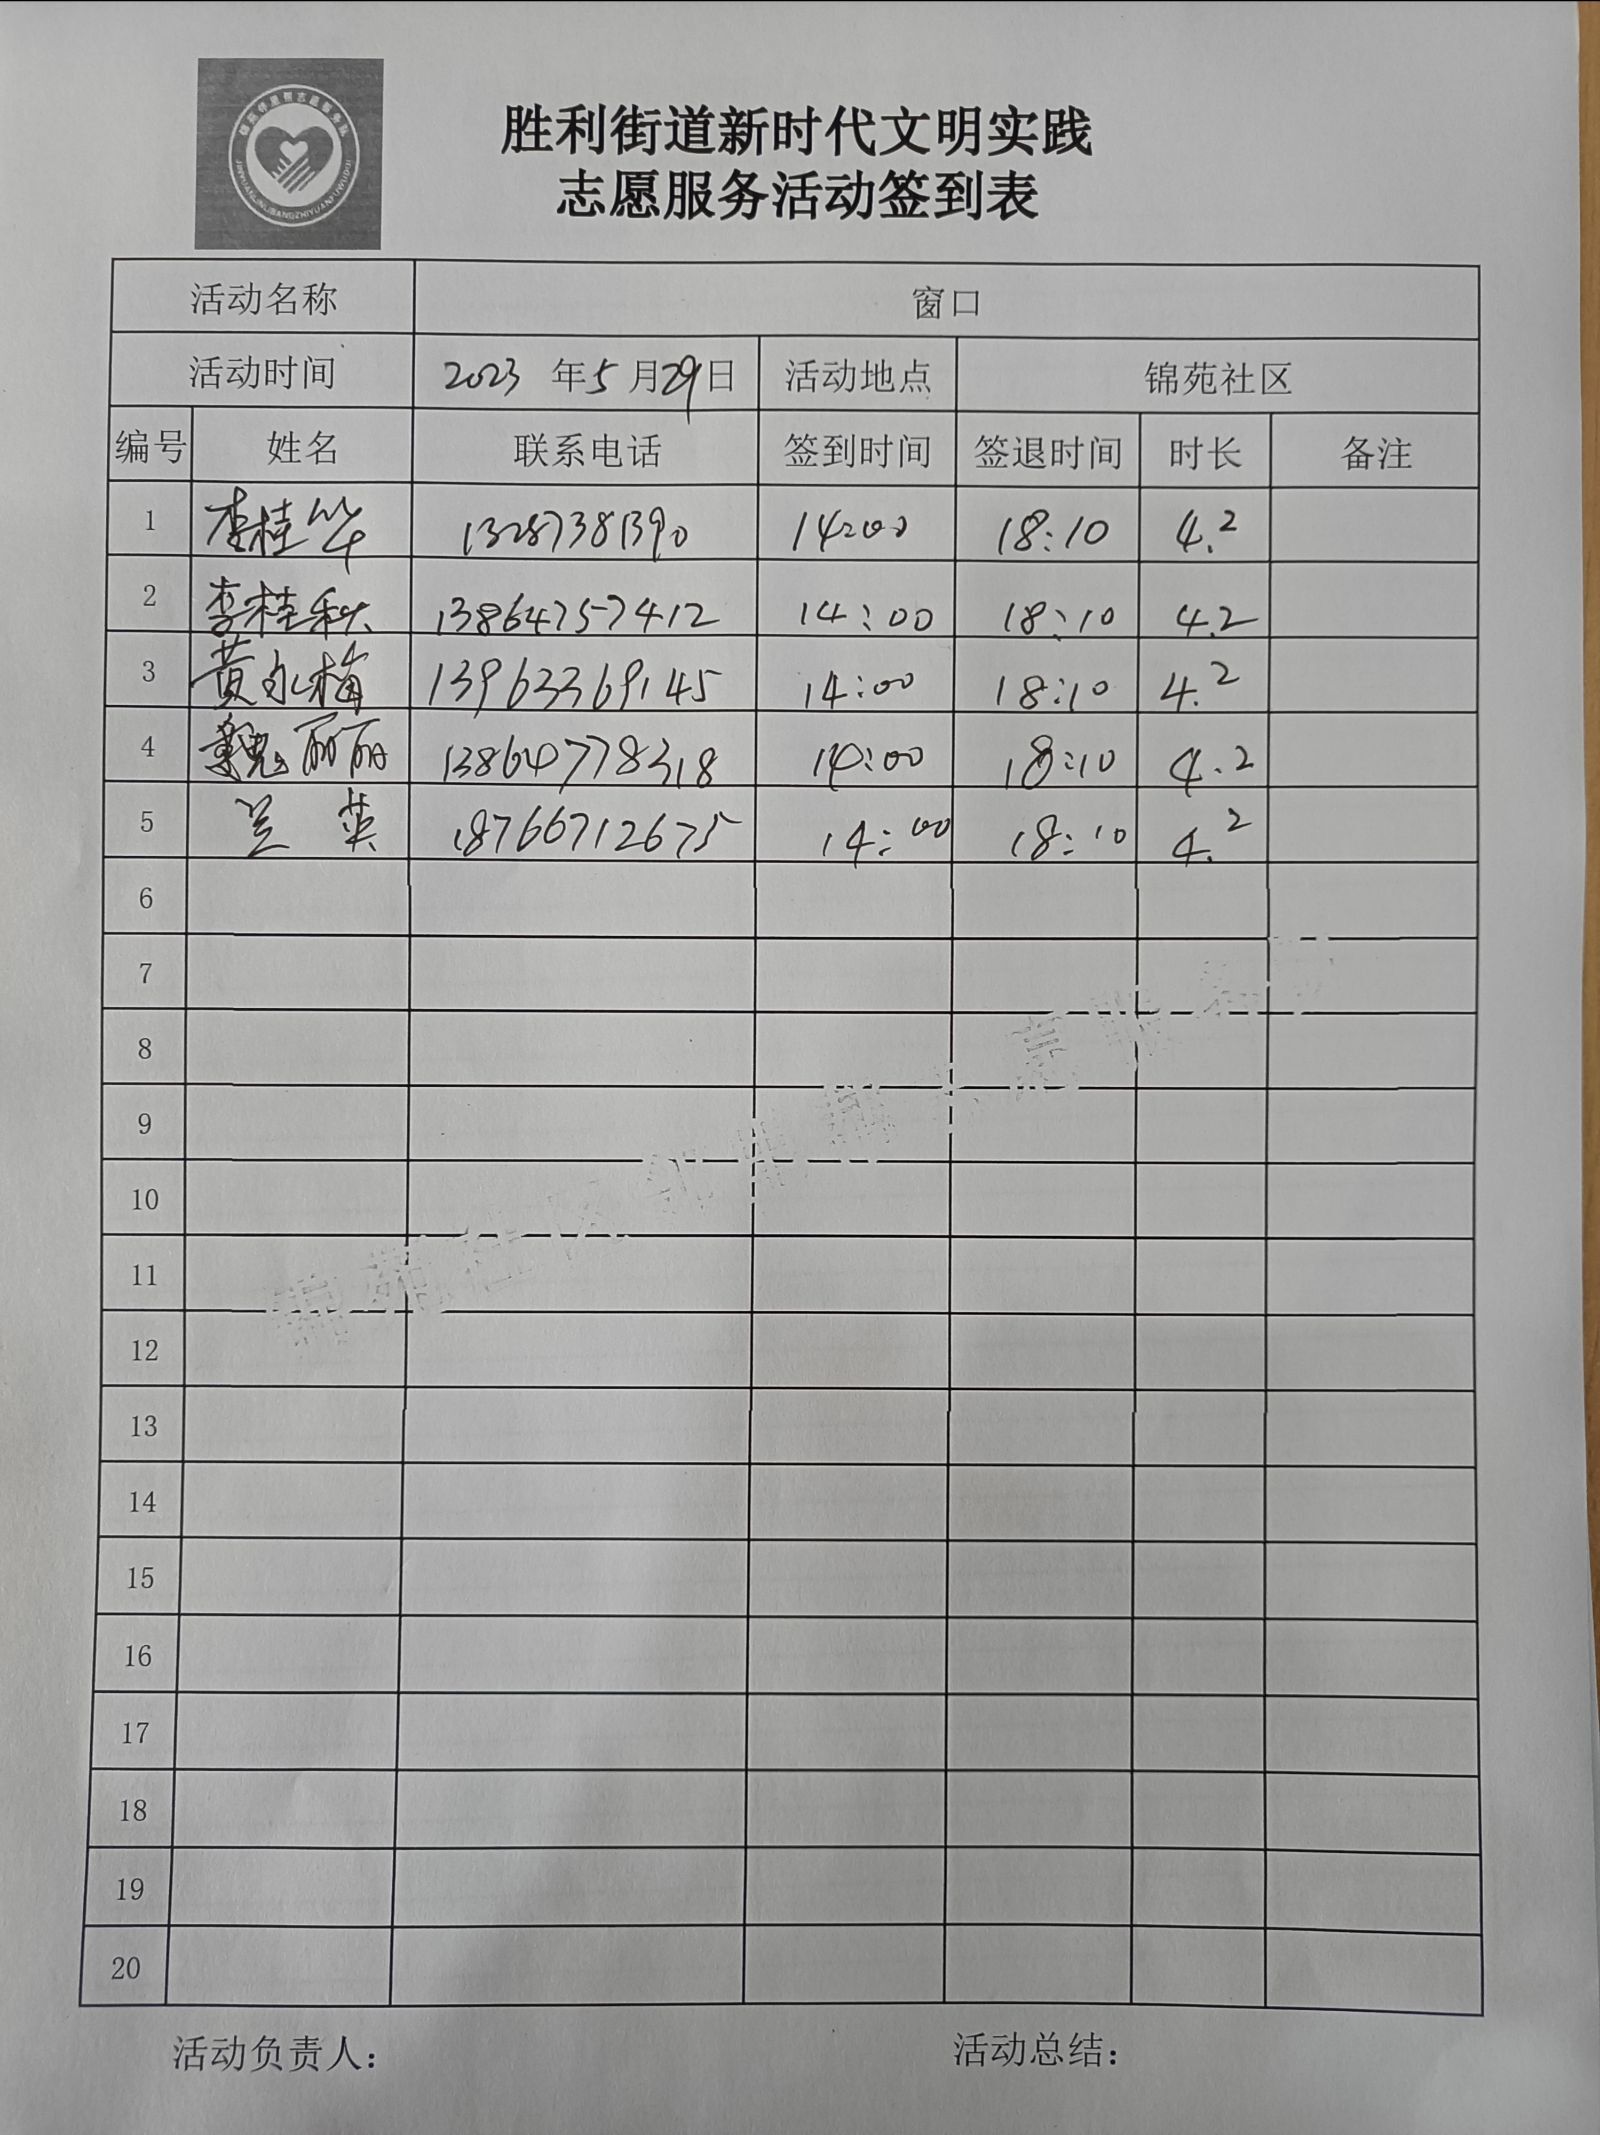 锦苑邻里帮志愿服务队
JINYUANLINLIBANGZHIYUANFUWUDUI
胜利街道新时代文明实践
志愿服务活动签到表
活动名称 窗口
活动时间 2023 年 5 月 29 日 活动地点 锦苑社区
编号 姓名 联系电话 签到时间 签退时间 时长 备注
1 李桂华 13287381390 14:00 18:10 4.2
2 李桂秋 13864757412 14:00 18:10 4.2
3 黄永梅 13963369145 14:00 18:10 4.2
4 魏丽丽 13864778318 14:00 18:10 4.2
5 兰英 18766712675 14:00 18:10 4.2
6
7
8
9
10
11
12
13
14
15
16
17
18
19
20
活动负责人： 活动总结：